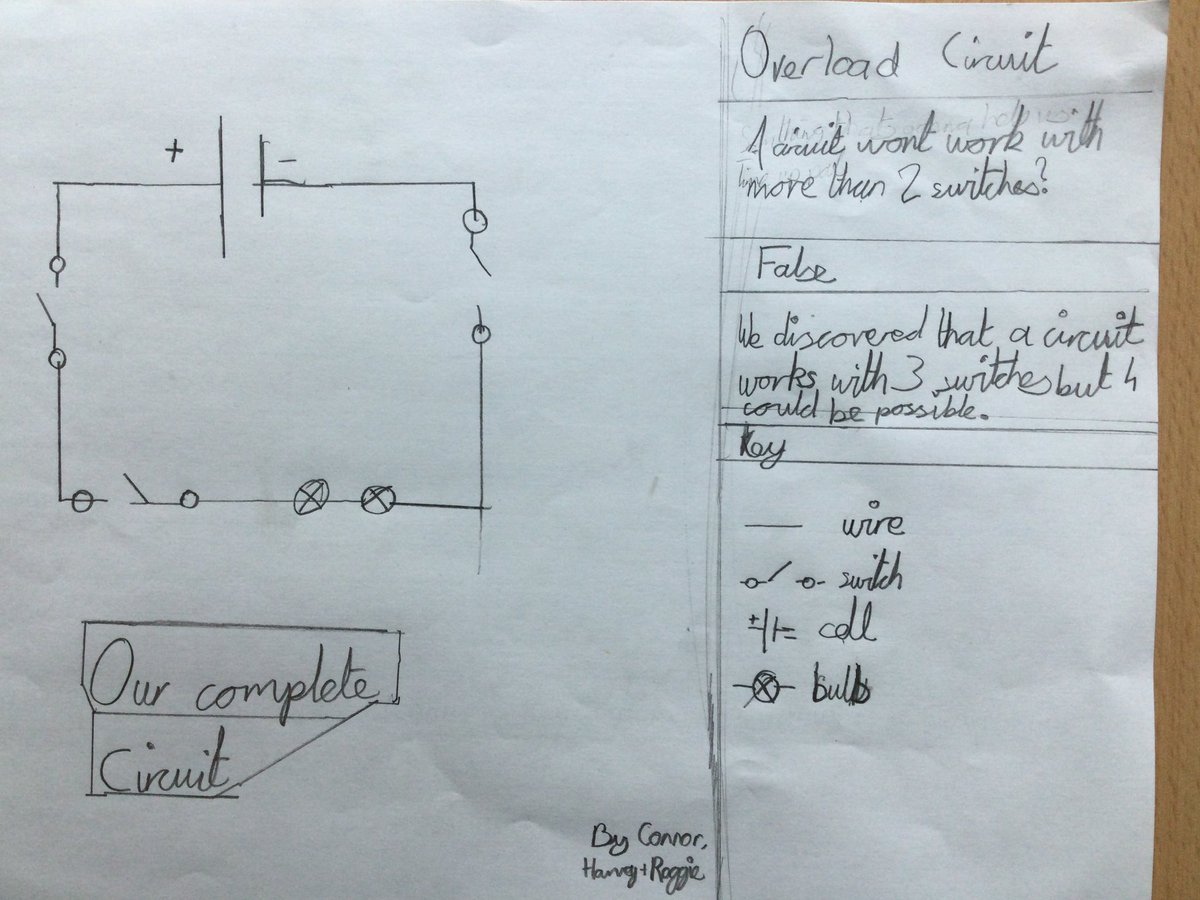 + -
Our complete
Circuit
By Connor,
Harvey + Reggie
Overload Circuit
A circuit wont work with
more than 2 switches?
False
We discovered that a circuit
works with 3 switches but 4
could be possible.
Key
wire
switch
+ - cell
bulb